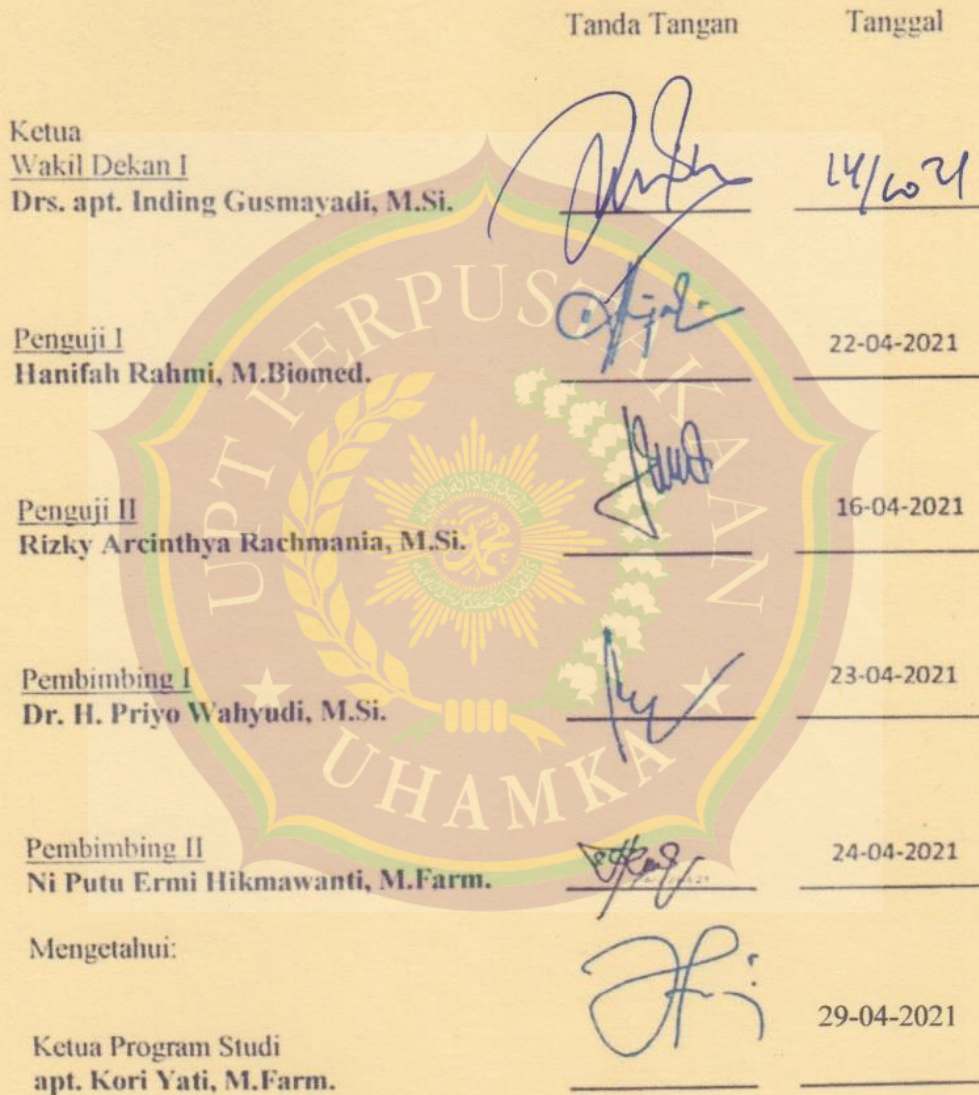 Tanda Tangan Tanggal
Ketua
Wakil Dekan I
Drs. apt. Inding Gusmayadi, M.Si.
14/10 21
Penguji I
Hanifah Rahmi, M.Biomed.
22-04-2021
Penguji II
Rizky Arcinthya Rachmania, M.Si.
16-04-2021
Pembimbing I
Dr. H. Priyo Wahyudi, M.Si.
23-04-2021
Pembimbing II
Ni Putu Ermi Hikmawanti, M.Farm.
24-04-2021
Mengetahui:
Ketua Program Studi
apt. Kori Yati, M.Farm.
29-04-2021
UPT PERPUSTAKAAN
UHAMKA